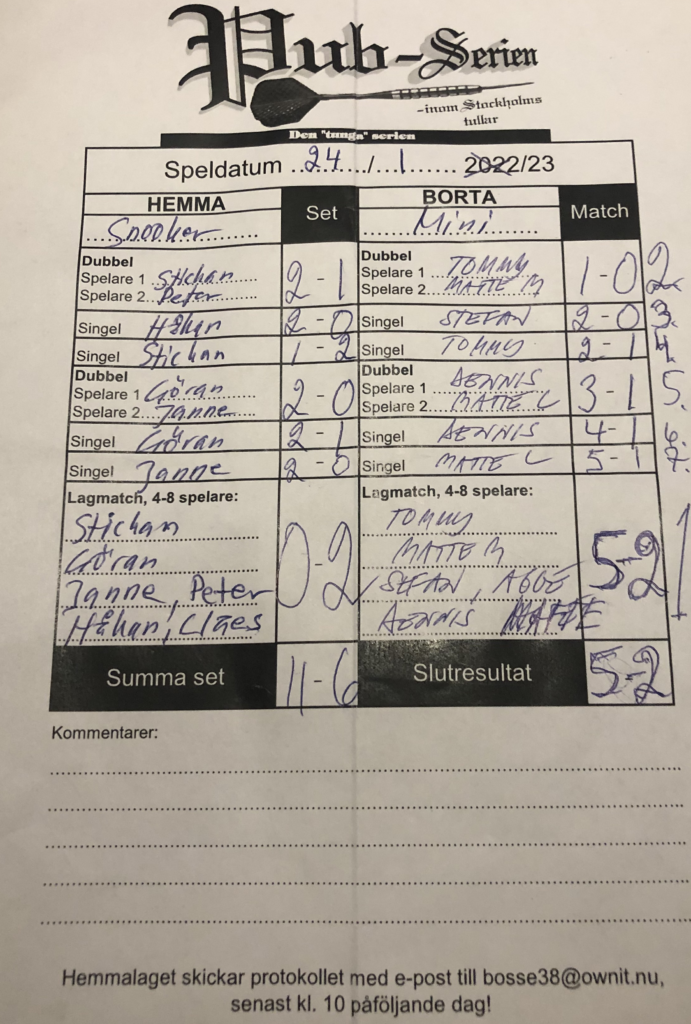 Pub-Serien
-inom Stockholms
tullar
Den "tunga" serien
Speldatum ..24..../...1...... 2022/23
HEMMA Set BORTA Match
Snooker Mini
Dubbel Dubbel
Spelare 1 Stichan 2-1 Spelare 1 TOMMY 1-0 2.
Spelare 2 Peter Spelare 2 MATTE M
Singel Håkan 2-0 Singel STEFAN 2-0 3.
Singel Stichan 1-2 Singel TOMMY 2-1 4.
Dubbel Dubbel
Spelare 1 Göran 2-0 Spelare 1 DENNIS 3-1 5.
Spelare 2 Janne Spelare 2 MATTE L
Singel Göran 2-1 Singel DENNIS 4-1 6.
Singel Janne 2-0 Singel MATTE L 5-1 7.
Lagmatch, 4-8 spelare: Lagmatch, 4-8 spelare:
Stichan TOMMY
Göran 0-2 MATTE M 5-2
Janne, Peter STEFAN, AGGE
Håkan, Claes DENNIS
Summa set 11-6 Slutresultat 5-2
Kommentarer:
Hemmalaget skickar protokollet med e-post till bosse38@ownit.nu,
senast kl. 10 påföljande dag!